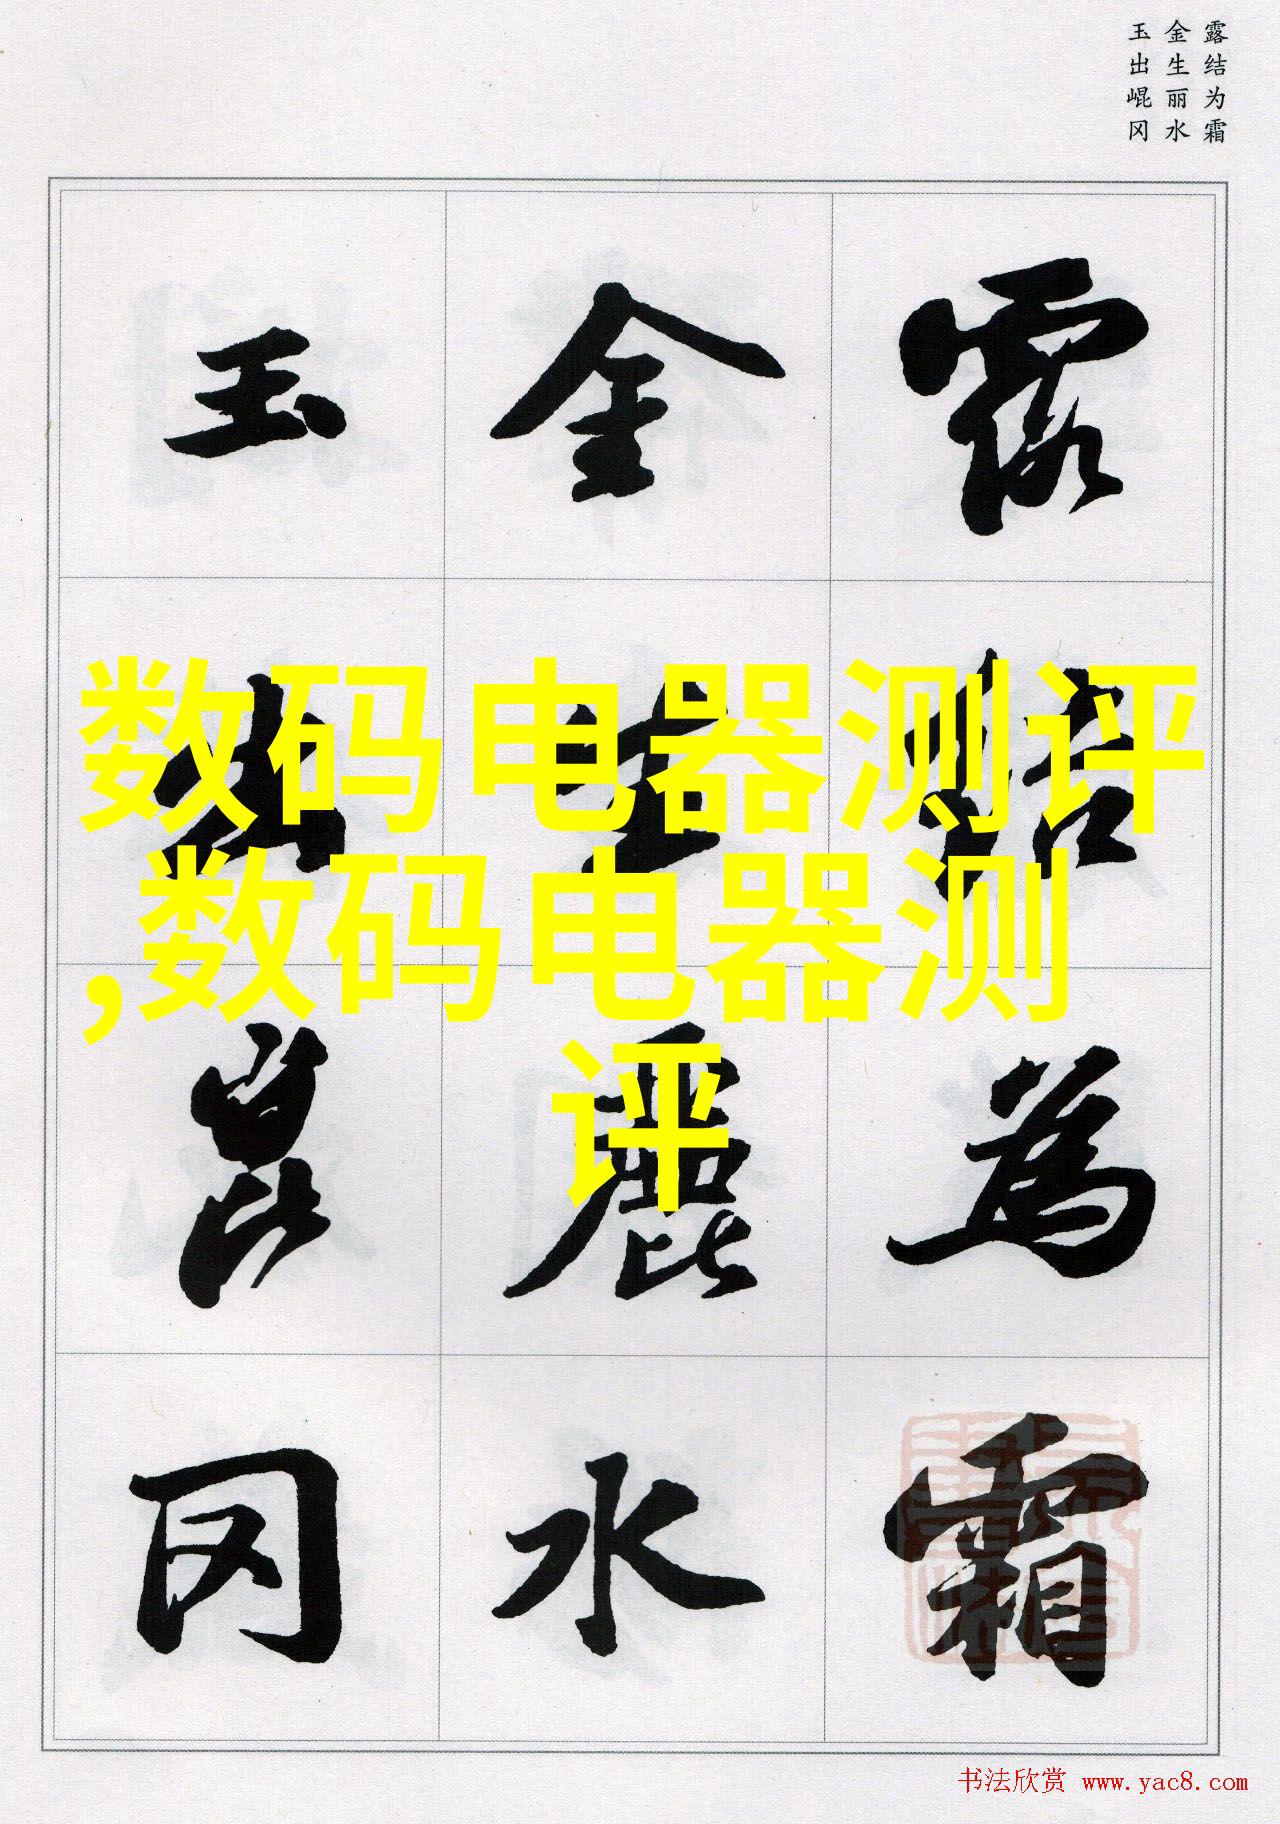 露结为霜
金生丽水
玉出崐冈
露結為霜
金生麗水
玉出崑冈
数码电器测评
,数码电器测
评
书法欣赏 www.yac8.com